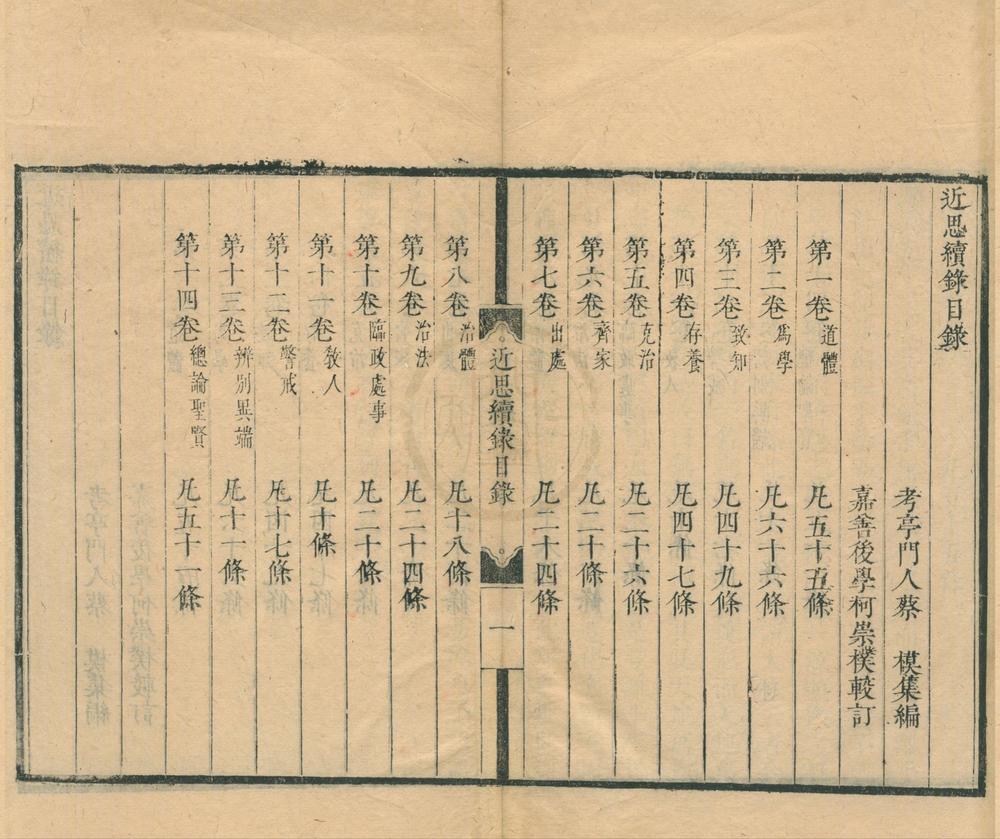 近思續錄目錄
考亭門人蔡 模集編
嘉善後學柯崇樸較訂
第一卷 道體 凡五十五條
第二卷 爲學 凡六十六條
第三卷 致知 凡四十九條
第四卷 存養 凡四十七條
第五卷 克治 凡二十六條
第六卷 齊家 凡二十條
第七卷 出處 凡二十四條
近思續錄目錄 一
第八卷 治體 凡十八條
第九卷 治法 凡二十四條
第十卷 臨政處事 凡二十條
第十一卷 敎人 凡十條
第十二卷 警戒 凡十七條
第十三卷 辨别異端 凡十一條
第十四卷 總論聖賢 凡五十一條